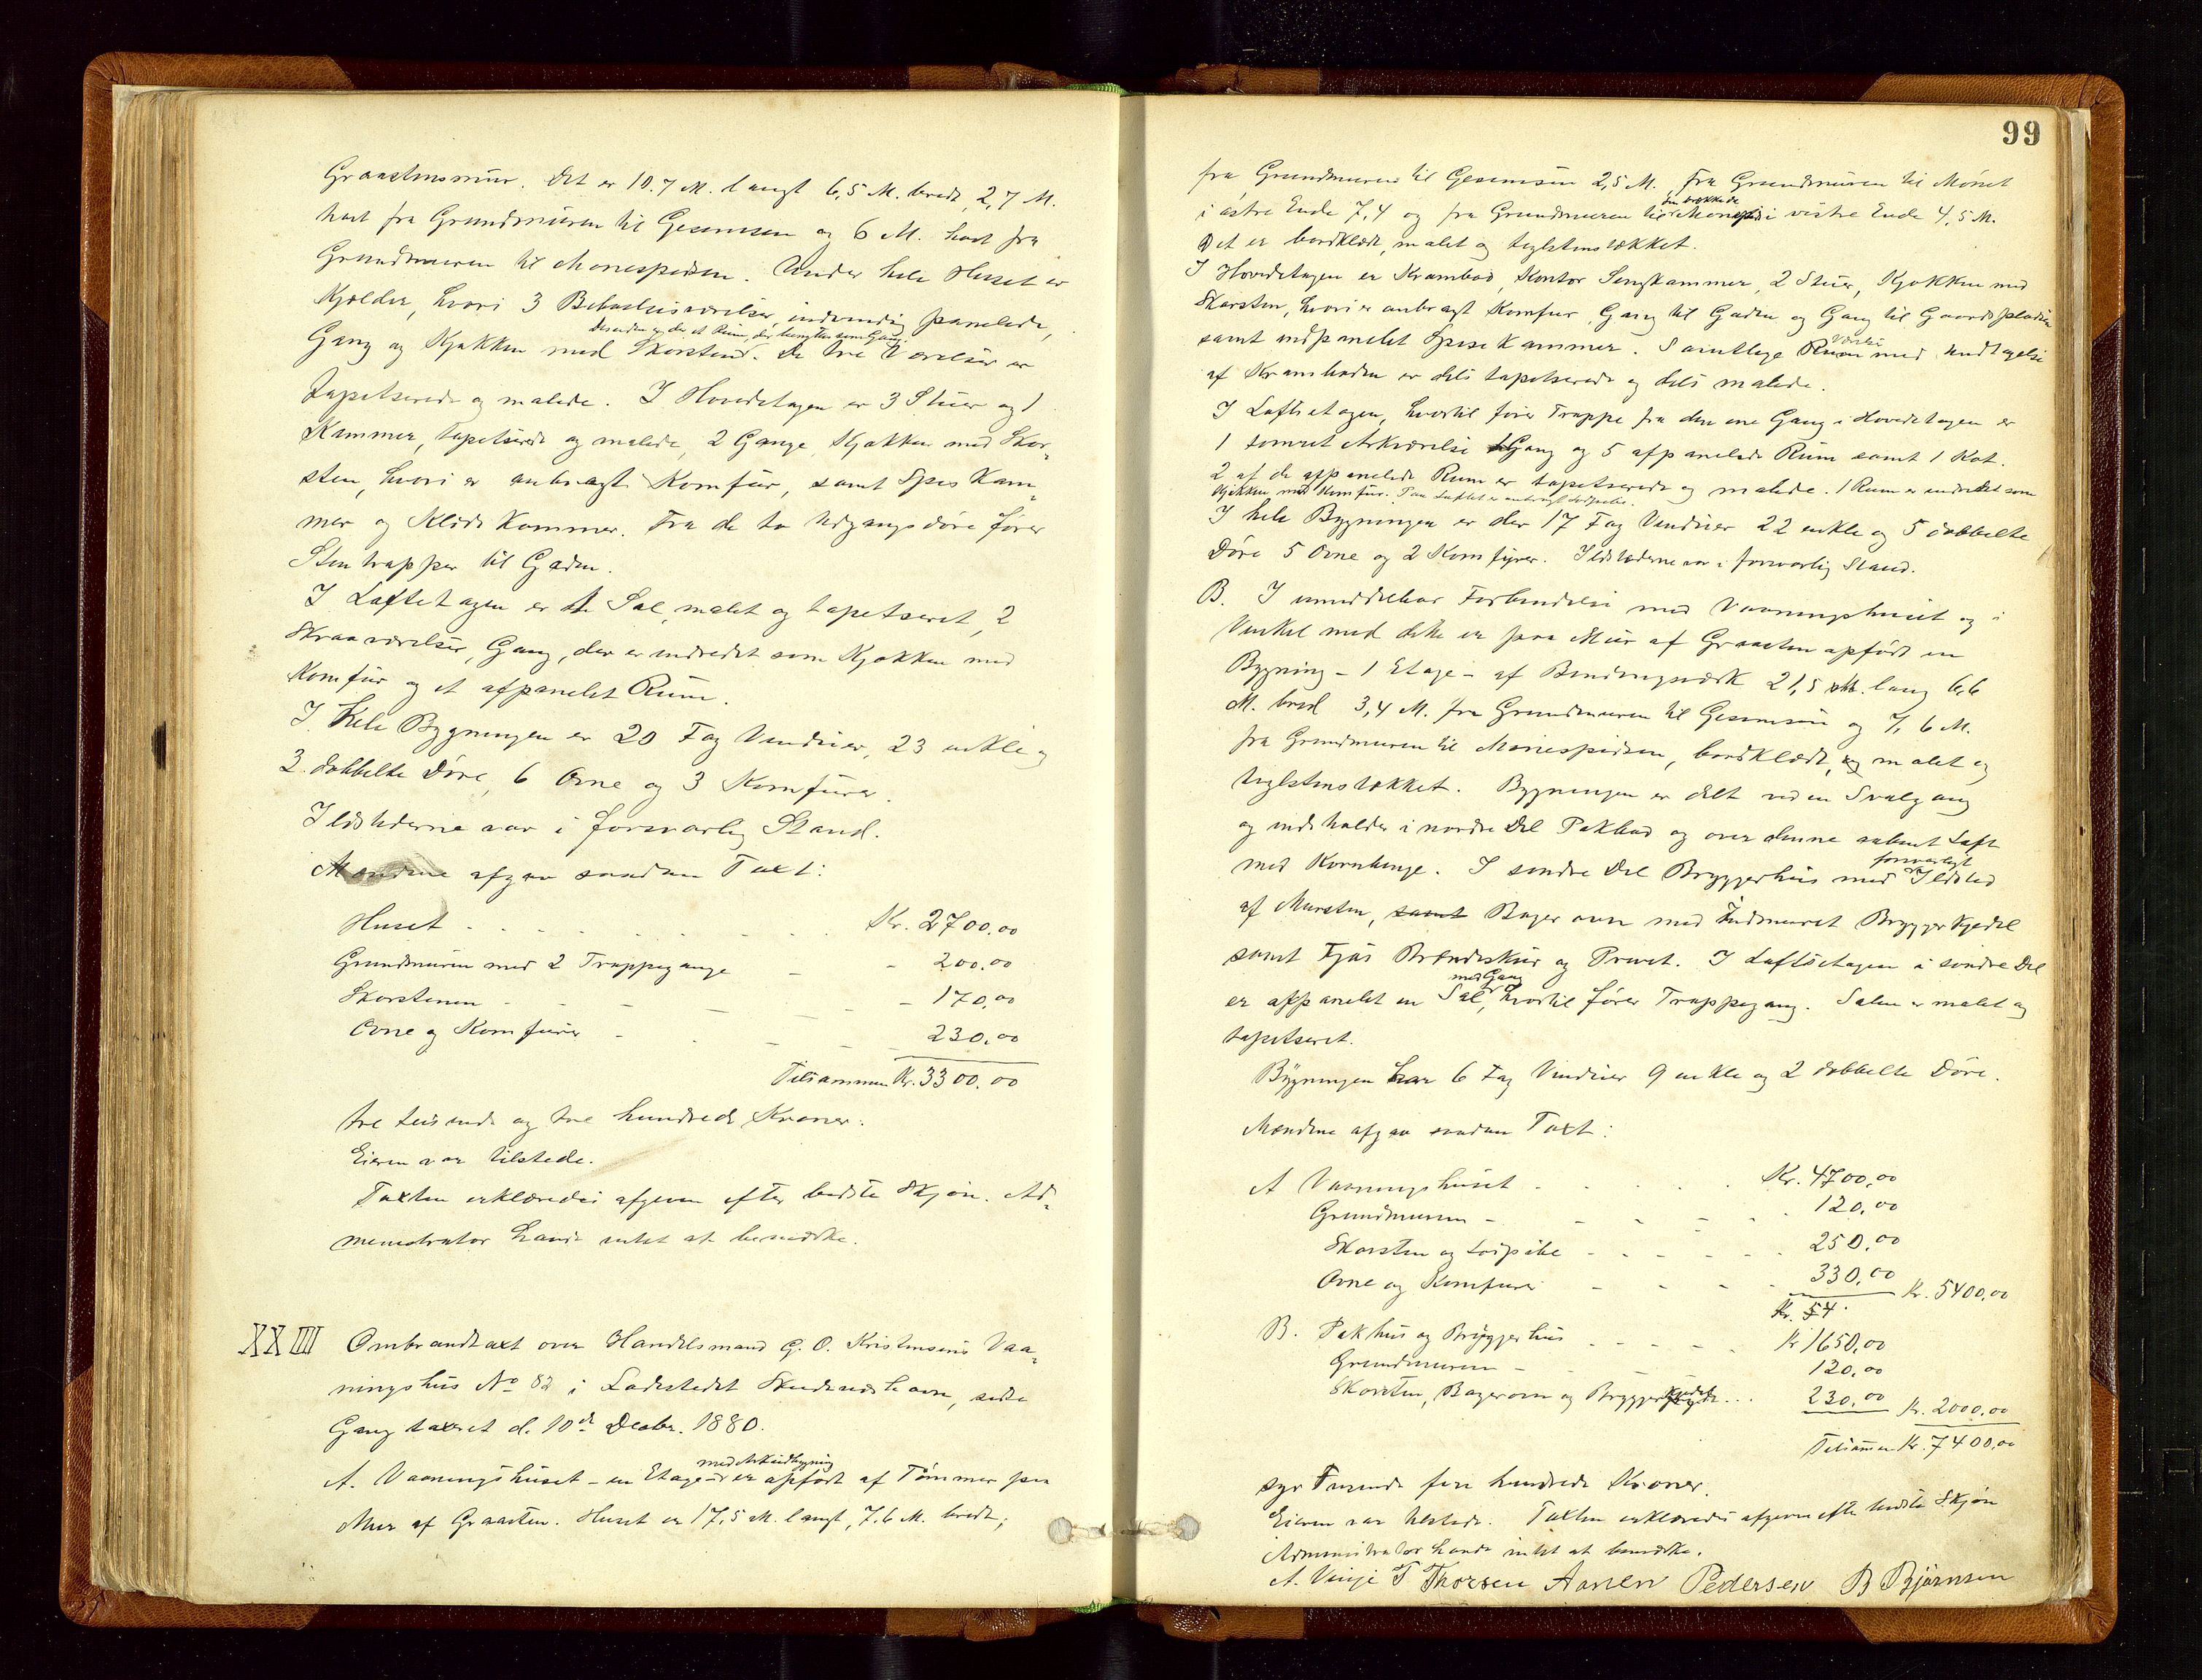 Graastensmur. Det er 10.7 M. langt 6,5 M. bredt, 2,7 M.
høit fra Grundmuren til Gesimsen og 6 M. høit fra
Grundmuren til Mønespidsen. Under hele Huset er
Kjelder, hvori 3 Beboelsesværelser, indvendig panelede,
Desuden er der et Rum, der benyttes som Gang.
Gang og Kjøkken med Skorsten. De tre Værelser er
tapetserede og malede. I Hovedetagen er 3 Stuer og 1
Kammer, tapetserede og malede, 2 Gange, Kjøkken med Skor-
sten, hvori er anbragt Komfur, samt Spiskam-
mer og Klædekammer. Fra de to Udgangsdøre fører
Stentrapper til Gaden.
I Loftetagen er 1 Sal, malet og tapetseret, 2
Skraaværelser, Gang, der er indredet som Kjøkken med
Komfur og et afpanelet Rum.
I hele Bygningen er 20 Fag Vinduer, 23 enkle og
3 dobbelte Døre, 6 Ovne og 3 Komfurer.
Ildstederne var i forsvarlig Stand.
Mændene afgav saadan Taxt:
Huset Kr. 2700.00
Grundmuren med 2 Trappegange - - 200.00
Skorstenen - - - 170,00
Ovne og Komfurer - - - 230.00
Tilsammen Kr. 3300.00
tre tusinde og tre hundrede Kroner.
Eieren var tilstede.
Taxten erklæredes afgiven efter bedste Skjøn. Ad-
ministrator havde intet at bemærke.
XXIII Ombrandtaxt over Handelsmand G. O. Kristensens Vaa-
ningshus No 82 i Ladestedet Skudeneshavn, sidste
Gang taxeret d. 10de Decbr. 1880.
med Arkindbygning
A. Vaaningshuset - en Etage - er opført af Tømmer paa
Mur af Graasten. Huset er 17,5 M. langt, 7.6 M. bredt,
99
fra Grundmuren til Gesimsen 2,5 M., fra Grundmuren til Mønet
i østre Ende 7,4 og fra Grundmuren til Mønet i vestre Ende 4,5 M.
Det er bordklædt, malet og teglstenstækket.
I Hovedetagen er Krambod, Kontor, Sengkammer, 2 Stuer, Kjøkken med
Skorsten, hvori er anbragt Komfur, Gang til Gaden og Gang til Gaardspladsen
samt indpanelet Spisekammer. Samtlige Værelser med Undtagelse
af Kramboden er dels tapetserede og dels malede.
I Loftsetagen, hvortil fører Trappe fra den ene Gang i Hovedetagen er
1 Arkværelse Gang og 5 afpanelede Rum samt 1 Kot.
2 af de afpanelede Rum er tapetserede og malede. 1 Rum er indredet som
Kjøkken med Komfur. Paa Loftet er anbragt Sodpibe.
I hele Bygningen er der 17 Fag Vinduer 22 enkle og 5 dobbelte
Døre 5 Ovne og 2 Komfyrer. Ildstederne var i forsvarlig Stand.
B. I umiddelbar Forbindelse med Vaaningshuset og i
Vinkel med dette er paa Mur af Graasten opført en
Bygning - 1 Etage - af Bindingsværk 21,5 M. lang 6,6
M. bred 3,4 M. fra Grundmuren til Gesimsen og 7,6 M.
fra Grundmuren til Mønespidsen, bordklædt, malet og
teglstenstækket. Bygningen er delt ved en Svalgang
og indeholder i nordre Del Pakbod og over denne aabent Loft
med Kornbinge. I søndre Del Bryggerhus med forsvarligt Ildsted
af Mursten, samt Bagerovn med Indmuret Bryggerkjedel
samt Fjøs Brændeskur og Privet. I Loftsetagen i søndre Del
med Gang
er afpanelet en Sal, hvortil fører Trappegang. Salen er malet og
tapetseret.
Bygningen har 6 Fag Vinduer 9 enkle og 2 dobbelte Døre.
Mændene afgav saadan Taxt:
A Vaaningshuset - Kr. 4700,00
Grundmuren - - - 120,00
Skorsten og Sodpibe - - - 250,00
Ovne og Komfurer - - - 330,00 Kr. 5400,00
Kr. 54
B. Pakhus og Bryggerhus - - Kr 1650,00
Grundmuren - - 120,00
Skorsten, Bagerovn og Bryggerkjedel ... 230,00 Kr. 2000,00
Tilsammen Kr. 7400,00
syv Tusinde fire hundrede Kroner.
Eieren var tilstede. Taxten erklæredes afgiven efter bedste Skjøn
Administrator havde intet at bemærke.
A. Vinje T Thorsen Aanen Pedersen B Bjørnsen